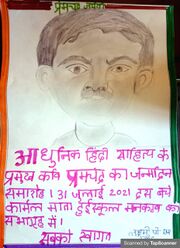 प्रेमचंद जयंती
आधुनिक हिंदी साहित्य के
प्रमुख कवि प्रेमचंद का जन्मदिन
समारोह । 31 जुलाई 2021 दस बजे
कार्मल माता हाईस्कूल
सभागृह में।
सबका स्वागत
Scanned by TapScanner